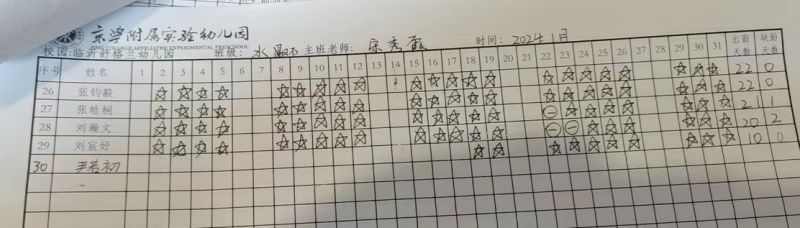 京学附属实验幼儿园
JINGXUE COLLEGE AFFILIATED EXPERIMENTAL PRESCHOOL
校园:临沂舒格兰幼儿园 班级: 水 主班老师: 宋秀霞 时间: 2024.1月
序号 姓名 1 2 3 4 5 6 7 8 9 10 11 12 13 14 15 16 17 18 19 20 21 22 23 24 25 26 27 28 29 30 31 出勤天数 缺勤天数
26 张钧毅 ☆ ☆ ☆ ☆ ☆ ☆ ☆ ☆ ☆ ☆ ☆ ☆ ☆ ☆ ☆ ☆ ☆ ☆ ☆ ☆ ☆ ☆ 22 0
27 张皓桐 ☆ ☆ ☆ ☆ ☆ ☆ ☆ ☆ ☆ ☆ ☆ ☆ ☆ ☆ ☆ ☆ ☆ ☆ ☆ ☆ ☆ ☆ 22 0
28 刘瀚文 ☆ ☆ ☆ ☆ ☆ ☆ ☆ ☆ ☆ ☆ ☆ ☆ ☆ ☆ ⊖ ☆ ☆ ☆ ☆ ☆ ☆ ☆ 21 1
29 刘宸妤 ☆ ☆ ☆ ☆ ☆ ☆ ☆ ☆ ☆ ☆ ☆ ☆ ☆ ☆ ⊖ ⊖ ☆ ☆ ☆ ☆ ☆ ☆ 20 2
30 尹若初 ☆ ☆ ☆ ☆ ☆ ☆ ☆ ☆ ☆ ☆ 10 0